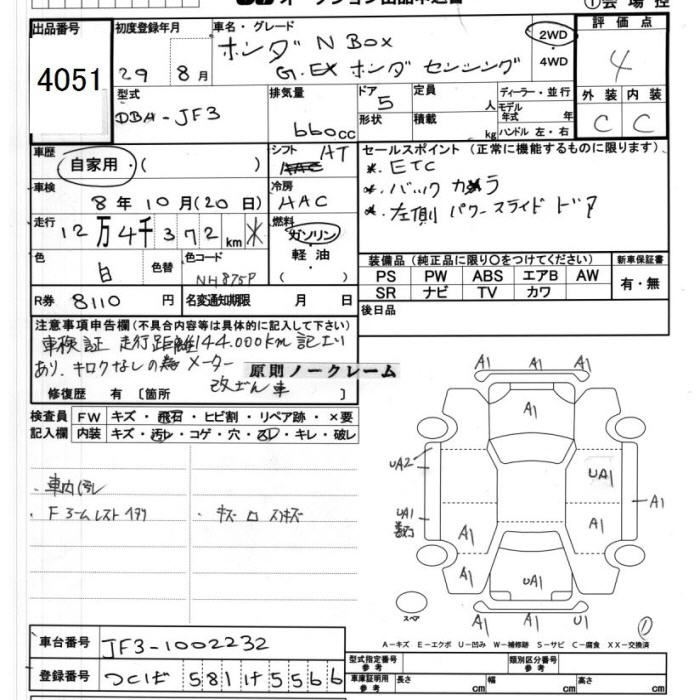 出品番号
4051
初度登録年月
29 8月
車名・グレード
ホンダ N BOX
G.EX ホンダ センシング
2WD
・
4WD
評価点
4
型式
DBA-JF3
排気量
660cc
ドア
5
形状
定員
人
積載
kg
ディーラー・並行
モデル
年式 年
ハンドル 左・右
外装 内装
C C
車歴
自家用・( )
シフト AT
車検
8年10月(20日)
冷房
AAC
走行
12万4千372km
燃料
ガソリン
軽油
( )
色
白
色替
色コード
NH875P
R券 8110円
名変通知期限 月 日
セールスポイント (正常に機能するものに限ります)
*. ETC
*. バックカメラ
*. 左側 パワースライド ドア
装備品(純正品に限り○をつけてください)
新車保証書
PS PW ABS エアB AW
SR ナビ TV カワ
有・無
後日品
注意事項申告欄(不具合内容等は具体的に記入して下さい)
車検証 走行距離144.000km 記エリ
あり、キロクなしの為 メーター
改ざん車
原則ノークレーム
修復歴 有 [箇所 ]
検査員
記入欄
FW キズ・飛石・ヒビ割・リペア跡・×要
内装 キズ・汚レ・コゲ・穴・スレ・キレ・破レ
・車内汚れ
A1 A1
A1
UA2
UA1
UA1
A1
A1
A1
A1
UA1
A1 A1 U1
スペア
①
A-キズ E-エクボ U-凹み W-補修跡 S-サビ C-腐食 XX-交換済
車台番号 JF3-1002232
登録番号 つくば 581 け 5566
型式指定番号
参考
類別区分番号
参考
車庫証明用
参考
長さ cm 幅 cm 高さ cm